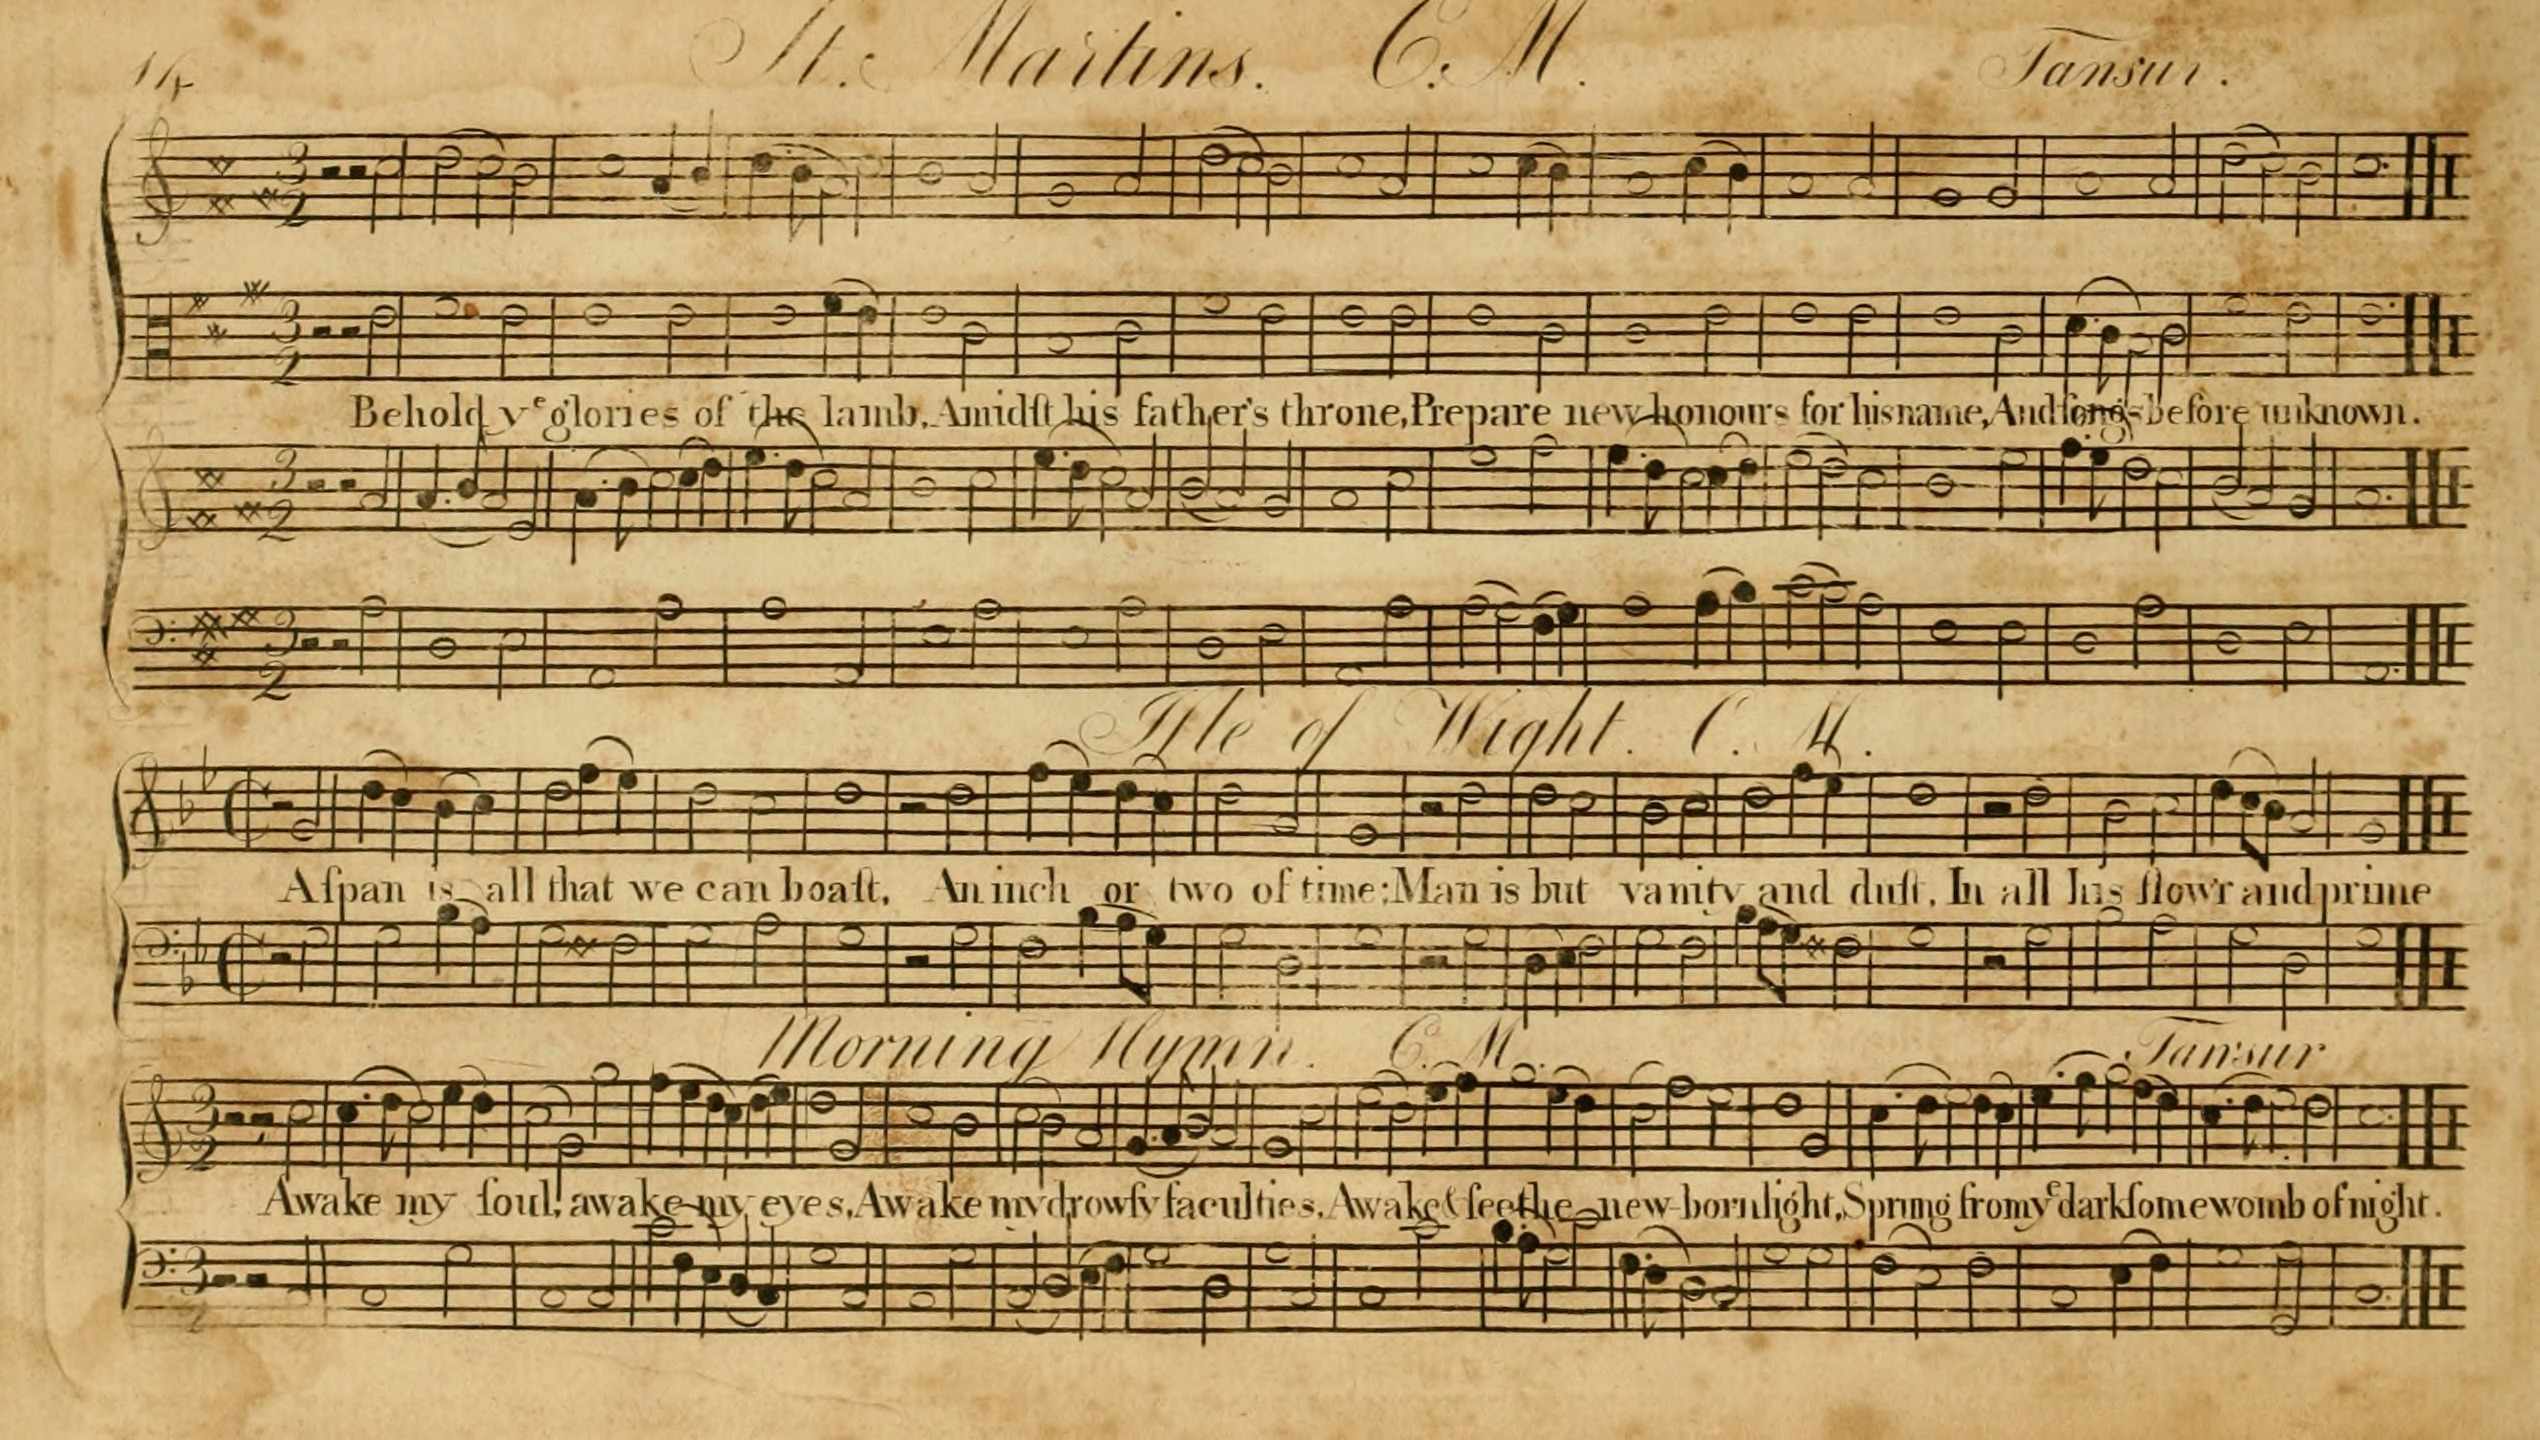 14 St. Martins. C. M. Tansur.
Behold yᵉ glories of the lamb, Amidſt his father's throne, Prepare new honours for his name, And ſongs before unknown.
Iſle of Wight. C. M.
A ſpan is all that we can boaſt, An inch or two of time; Man is but vanity and duſt, In all his flow'r and prime
Morning Hymn. C. M. Tansur
Awake my ſoul, awake my eyes, Awake my drowſy faculties, Awake & ſee the new-born light, Sprung from yᵉ darkſome womb of night.